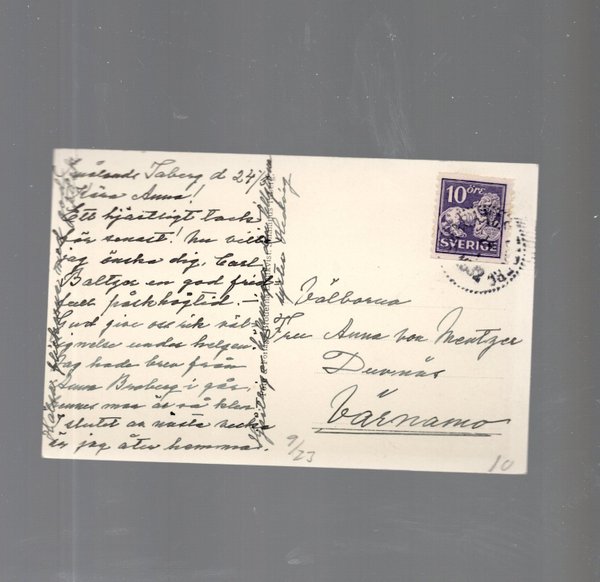 Smålands Taberg d 24/
Kära Anna!
Ett hjärtligt tack
för senast! Nu ville
jag önska dig, Carl
Baltzar en god frid
full påskhögtid.—
Gud give oss rik väl-
signelse under helgen!
Jag hade brev från
Anna Broberg i går,
hennes mor är så klen
I slutet av nästa vecka
är jag åter hemma.
Hälsa
syster Hedvig
10 ÖRE
SVERIGE
Välborna
Fru Anna von Mentzer
Duvenäs
Värnamo
9/23
10